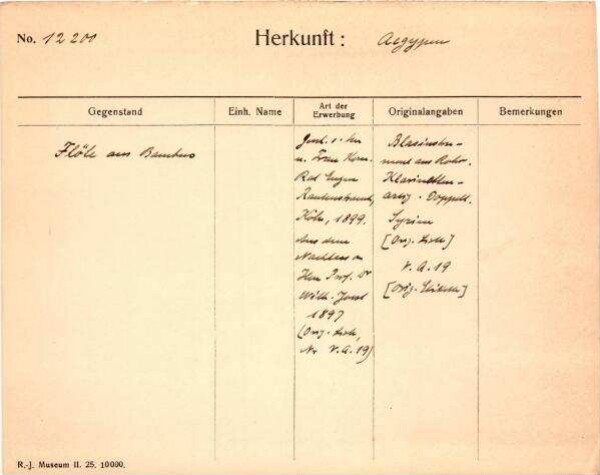 No. 12 200
Herkunft: Aegypten
Gegenstand
Einh. Name
Art der
Erwerbung
Originalangaben
Bemerkungen
Flöte aus Bambus
Gesch. v. Hrn
u. Frau Kom.
Rat Eugen
Rautenstrauch,
Köln, 1899.
Aus dem
Nachlass v
Hrn Prof. Dr
Wilh. Joest
1897
(Orig. Liste,
Nr V.A.19)
Blasinstru-
ment aus Rohr.
Klarinetten-
artig. Doppelt.
Syrien
[Orig. Liste]
V.A.19
[Orig. Etikett]
R.-J. Museum II. 25. 10000.